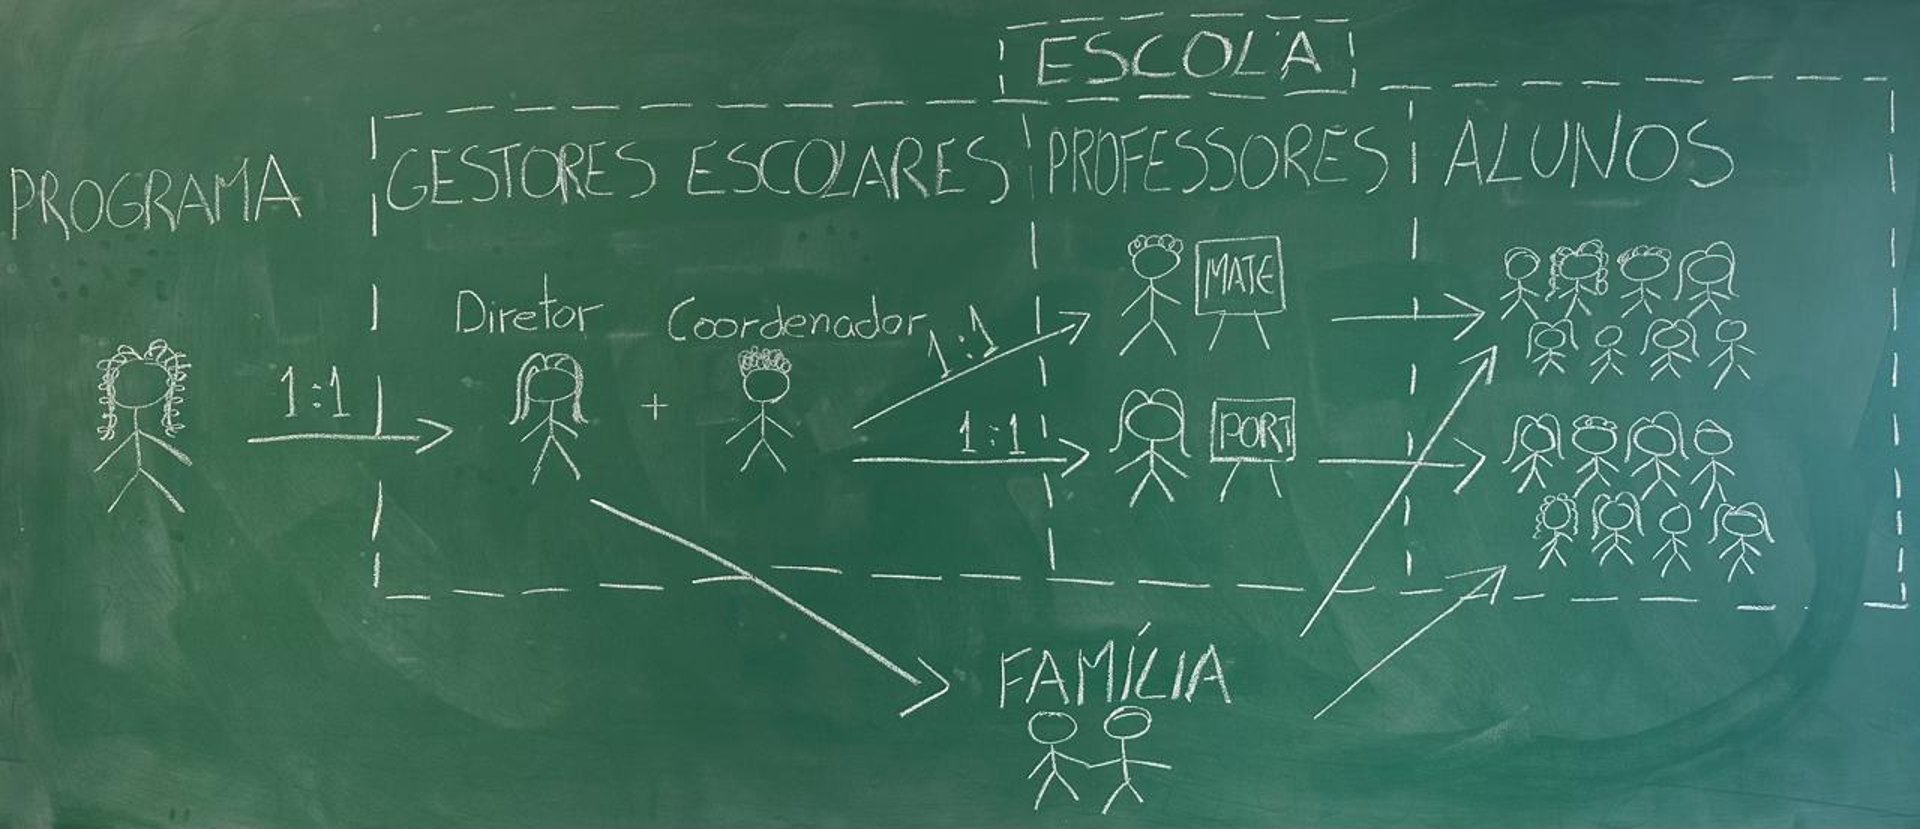 ESCOLA
PROGRAMA
GESTORES ESCOLARES
PROFESSORES
ALUNOS
Diretor
Coordenador
+
1:1
1:1
1:1
MATE
PORT
FAMÍLIA